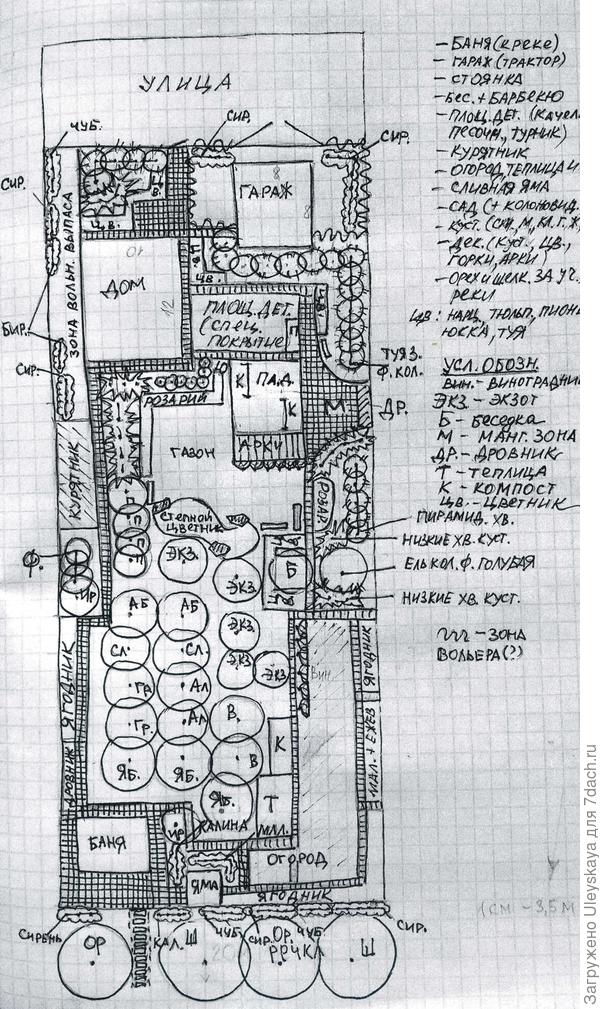 УЛИЦА
СИР.
ЧУБ.
СИР.
СИР.
В.
Ц В.
8
8
ГАРАЖ
ЗОНА ВОЛЬН. ВЫПАСА
10
ДОМ
12
ЦВ.
ПЛОЩ. ДЕТ.
(СПЕЦ.
ПОКРЫТИЕ)
П
БИР.
СИР.
ТУЯ З.
Ф. КОЛ.
РОЗАРИЙ
Ю
К
П А Д.
К
М
ДР.
АРКИ
ГАЗОН
КУРЯТНИК
СТЕПНОЙ
ЦВЕТНИК
РОЗАР.
П
П
П
ЭКЗ.
ЭКЗ
ЭКЗ.
ЭКЗ
ЭКЗ
Б
Ф.
ИР
АБ
АБ
СЛ.
СЛ.
ГР.
АЛ
ГР.
АЛ
В.
В
ЯБ.
ЯБ.
ЯБ.
К
Т
ВИН.
ЯГОДНИК
ЯГОДНИК
МАЛ. + ЕЖЕВ
ДРОВНИК
БАНЯ
ИР.
КАЛИНА
ЯМА
ОГОРОД
ЯГОДНИК
СИРЕНЬ
КАЛ.
ЧУБ.
СИР.
ЧУБ.
СИР.
ОР
Ш
20
ОР.
Ш
1 СМ - 3,5 М
- БАНЯ (КРЕКЕ)
- ГАРАЖ (ТРАКТОР)
- СТОЯНКА
- БЕС. + БАРБЕКЮ
- ПЛОЩ. ДЕТ. (КАЧЕЛ
ПЕСОЧН., ТУРНИК)
- КУРЯТНИК
- ОГОРОД, ТЕПЛИЦА И
- СЛИВНАЯ ЯМА
- САД (+ КОЛОНОВИД.
- ДЕК. (КУСТ., ЦВ.,
ГОРКИ, АРКИ)
- ОРЕХ И ШЕЛК. ЗА УЧ.
РЕКИ
ЦВ: НАРЦ, ТЮЛЬП, ПИОН
ЮККА, ТУЯ
УСЛ. ОБОЗН.
ВИН. - ВИНОГРАДНИК
ЭКЗ - ЭКЗОТ
Б - БЕСЕДКА
М - МАНГ. ЗОНА
ДР. - ДРОВНИК
Т - ТЕПЛИЦА
К - КОМПОСТ
ЦВ. - ЦВЕТНИК
ПИРАМИД. ХВ.
НИЗКИЕ ХВ. КУСТ.
ЕЛЬ КОЛ. Ф. ГОЛУБАЯ
НИЗКИЕ ХВ. КУСТ.
- ЗОНА
ВОЛЬЕРА (?)
Загружено Uleyskaya для 7dach.ru